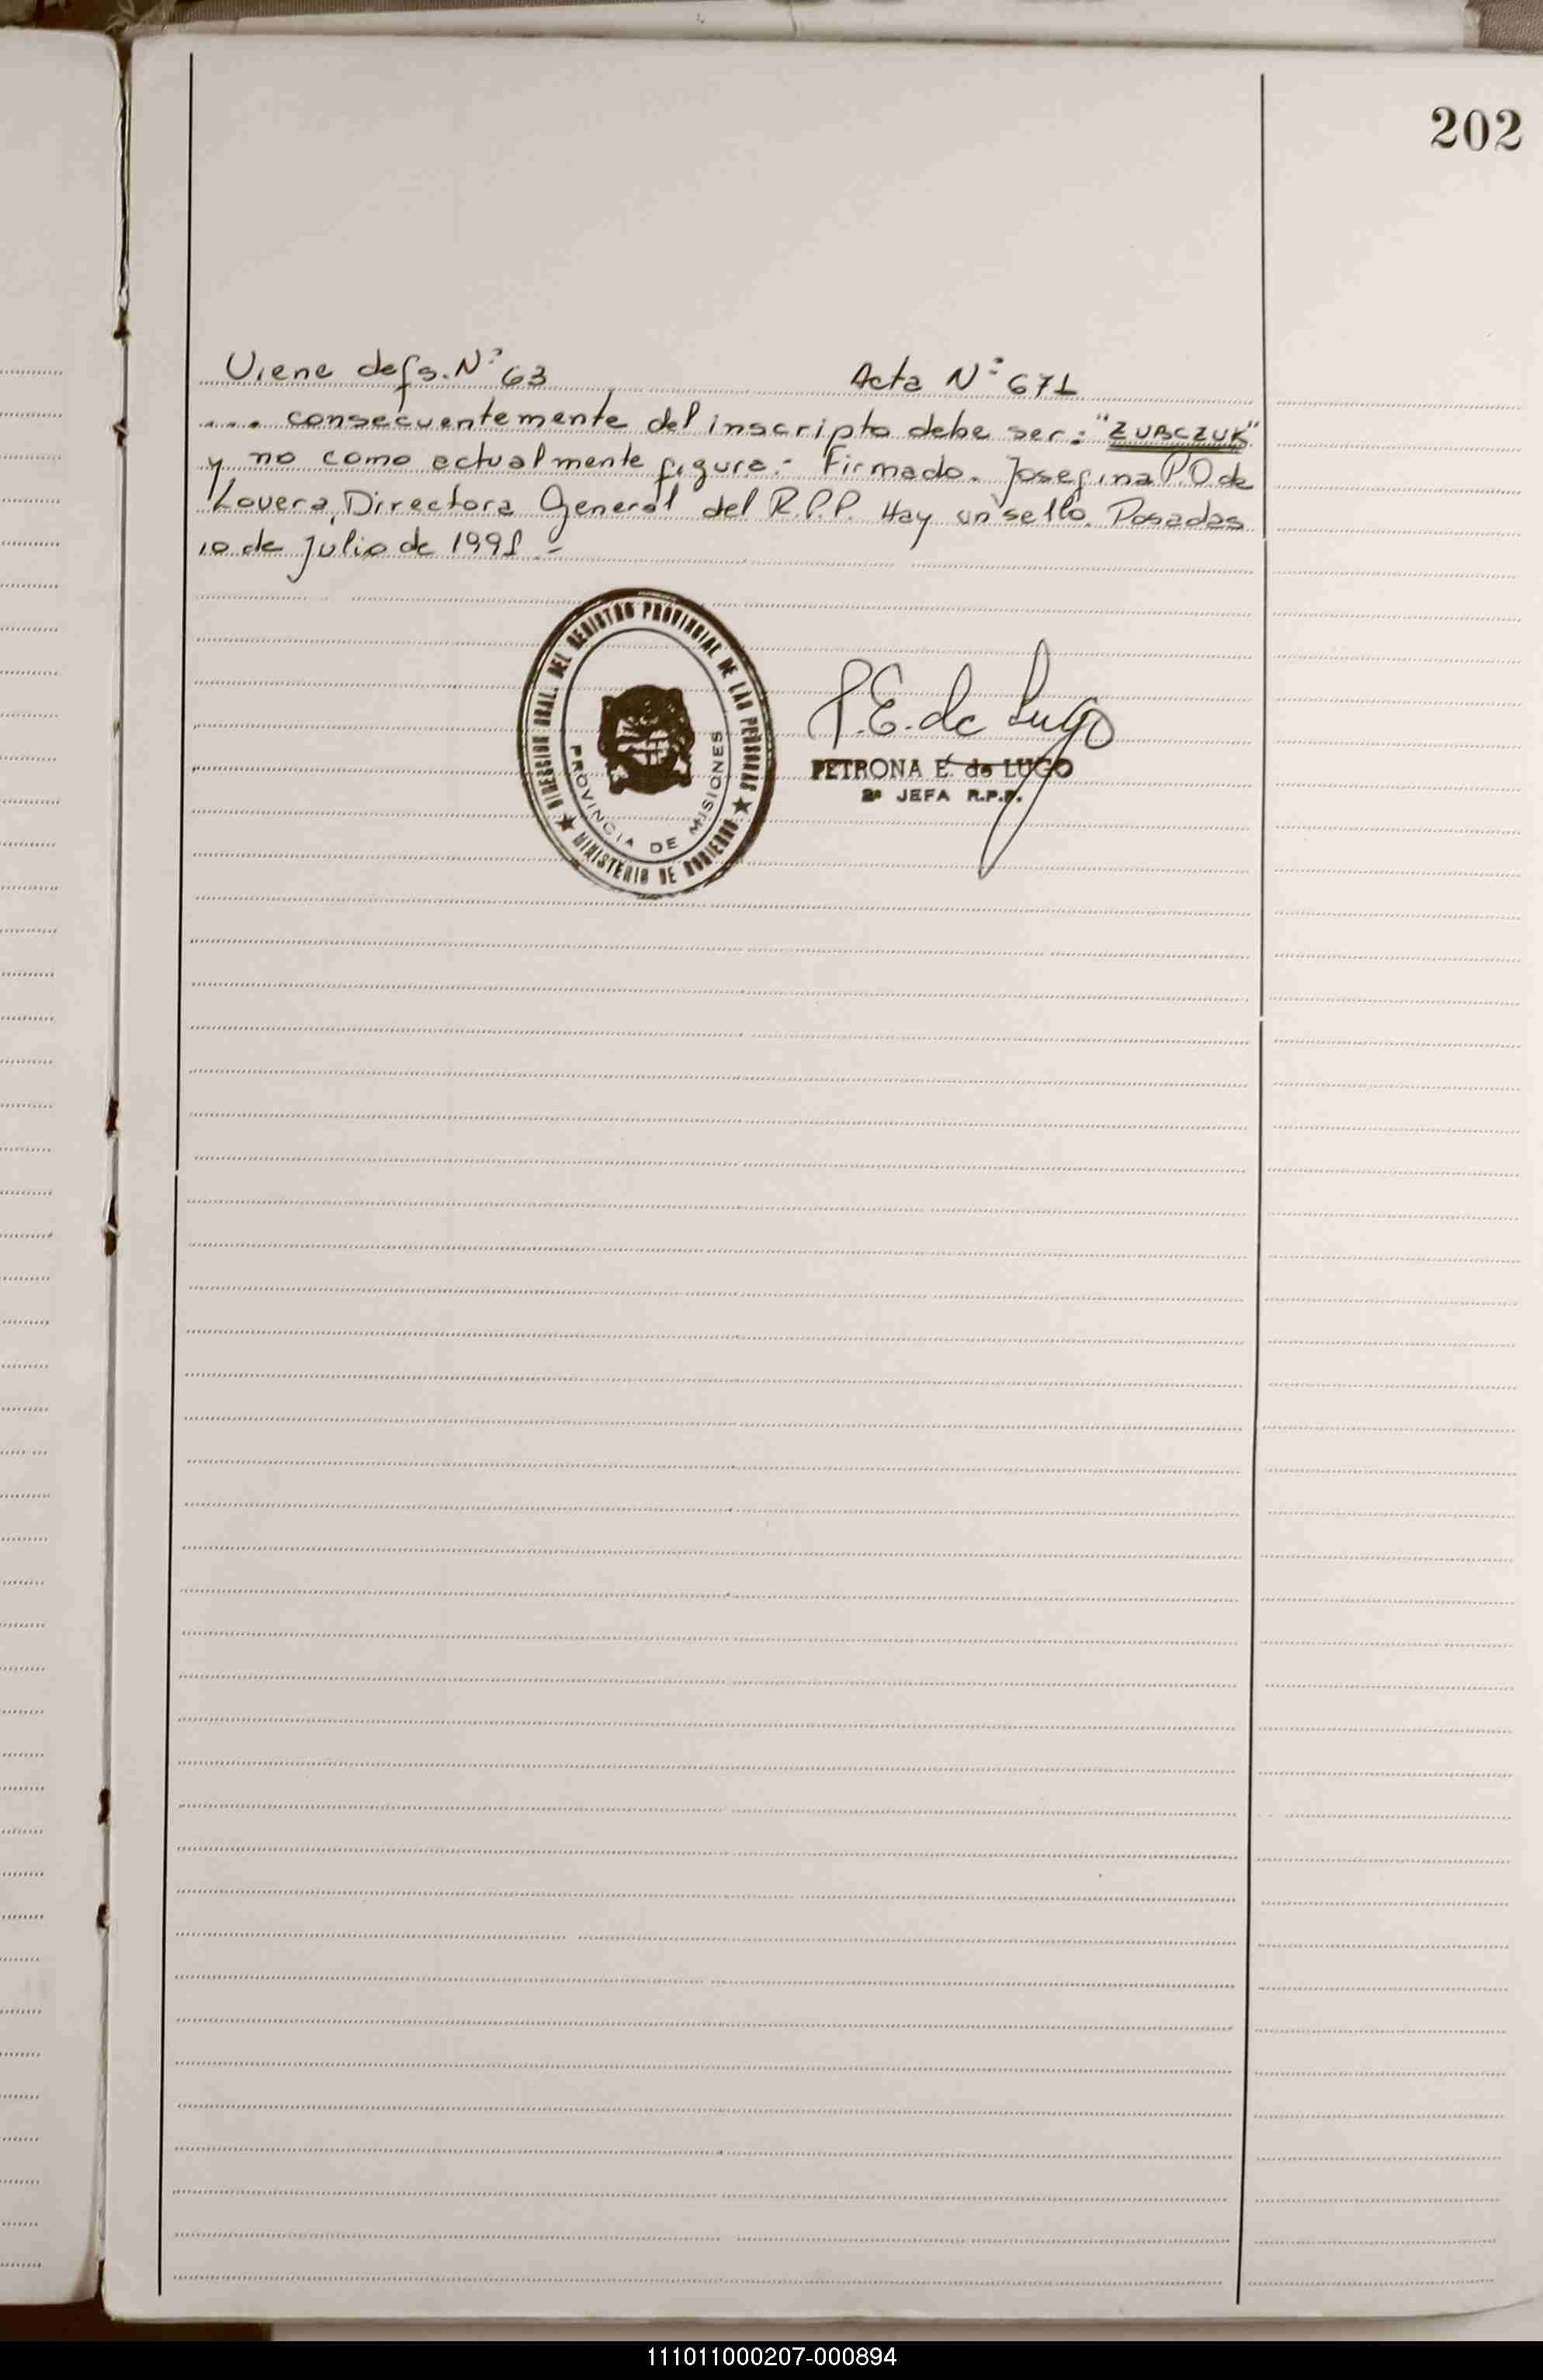 202
Viene de fs. Nº 63 Acta Nº 671
.... consecuentemente del inscripto debe ser: "ZUBCZUK"
y no como actualmente figura.- Firmado. Josefina P.O de
Lovera, Directora General del R.P.P. Hay un sello. Posadas
10 de Julio de 1991.-
DIRECCION GRAL. DEL REGISTRO PROVINCIAL DE LAS PERSONAS
PROVINCIA DE MISIONES
★ MINISTERIO DE GOBIERNO ★
P.E. de Lugo
PETRONA E. de LUGO
2ª JEFA R.P.P.
111011000207-000894